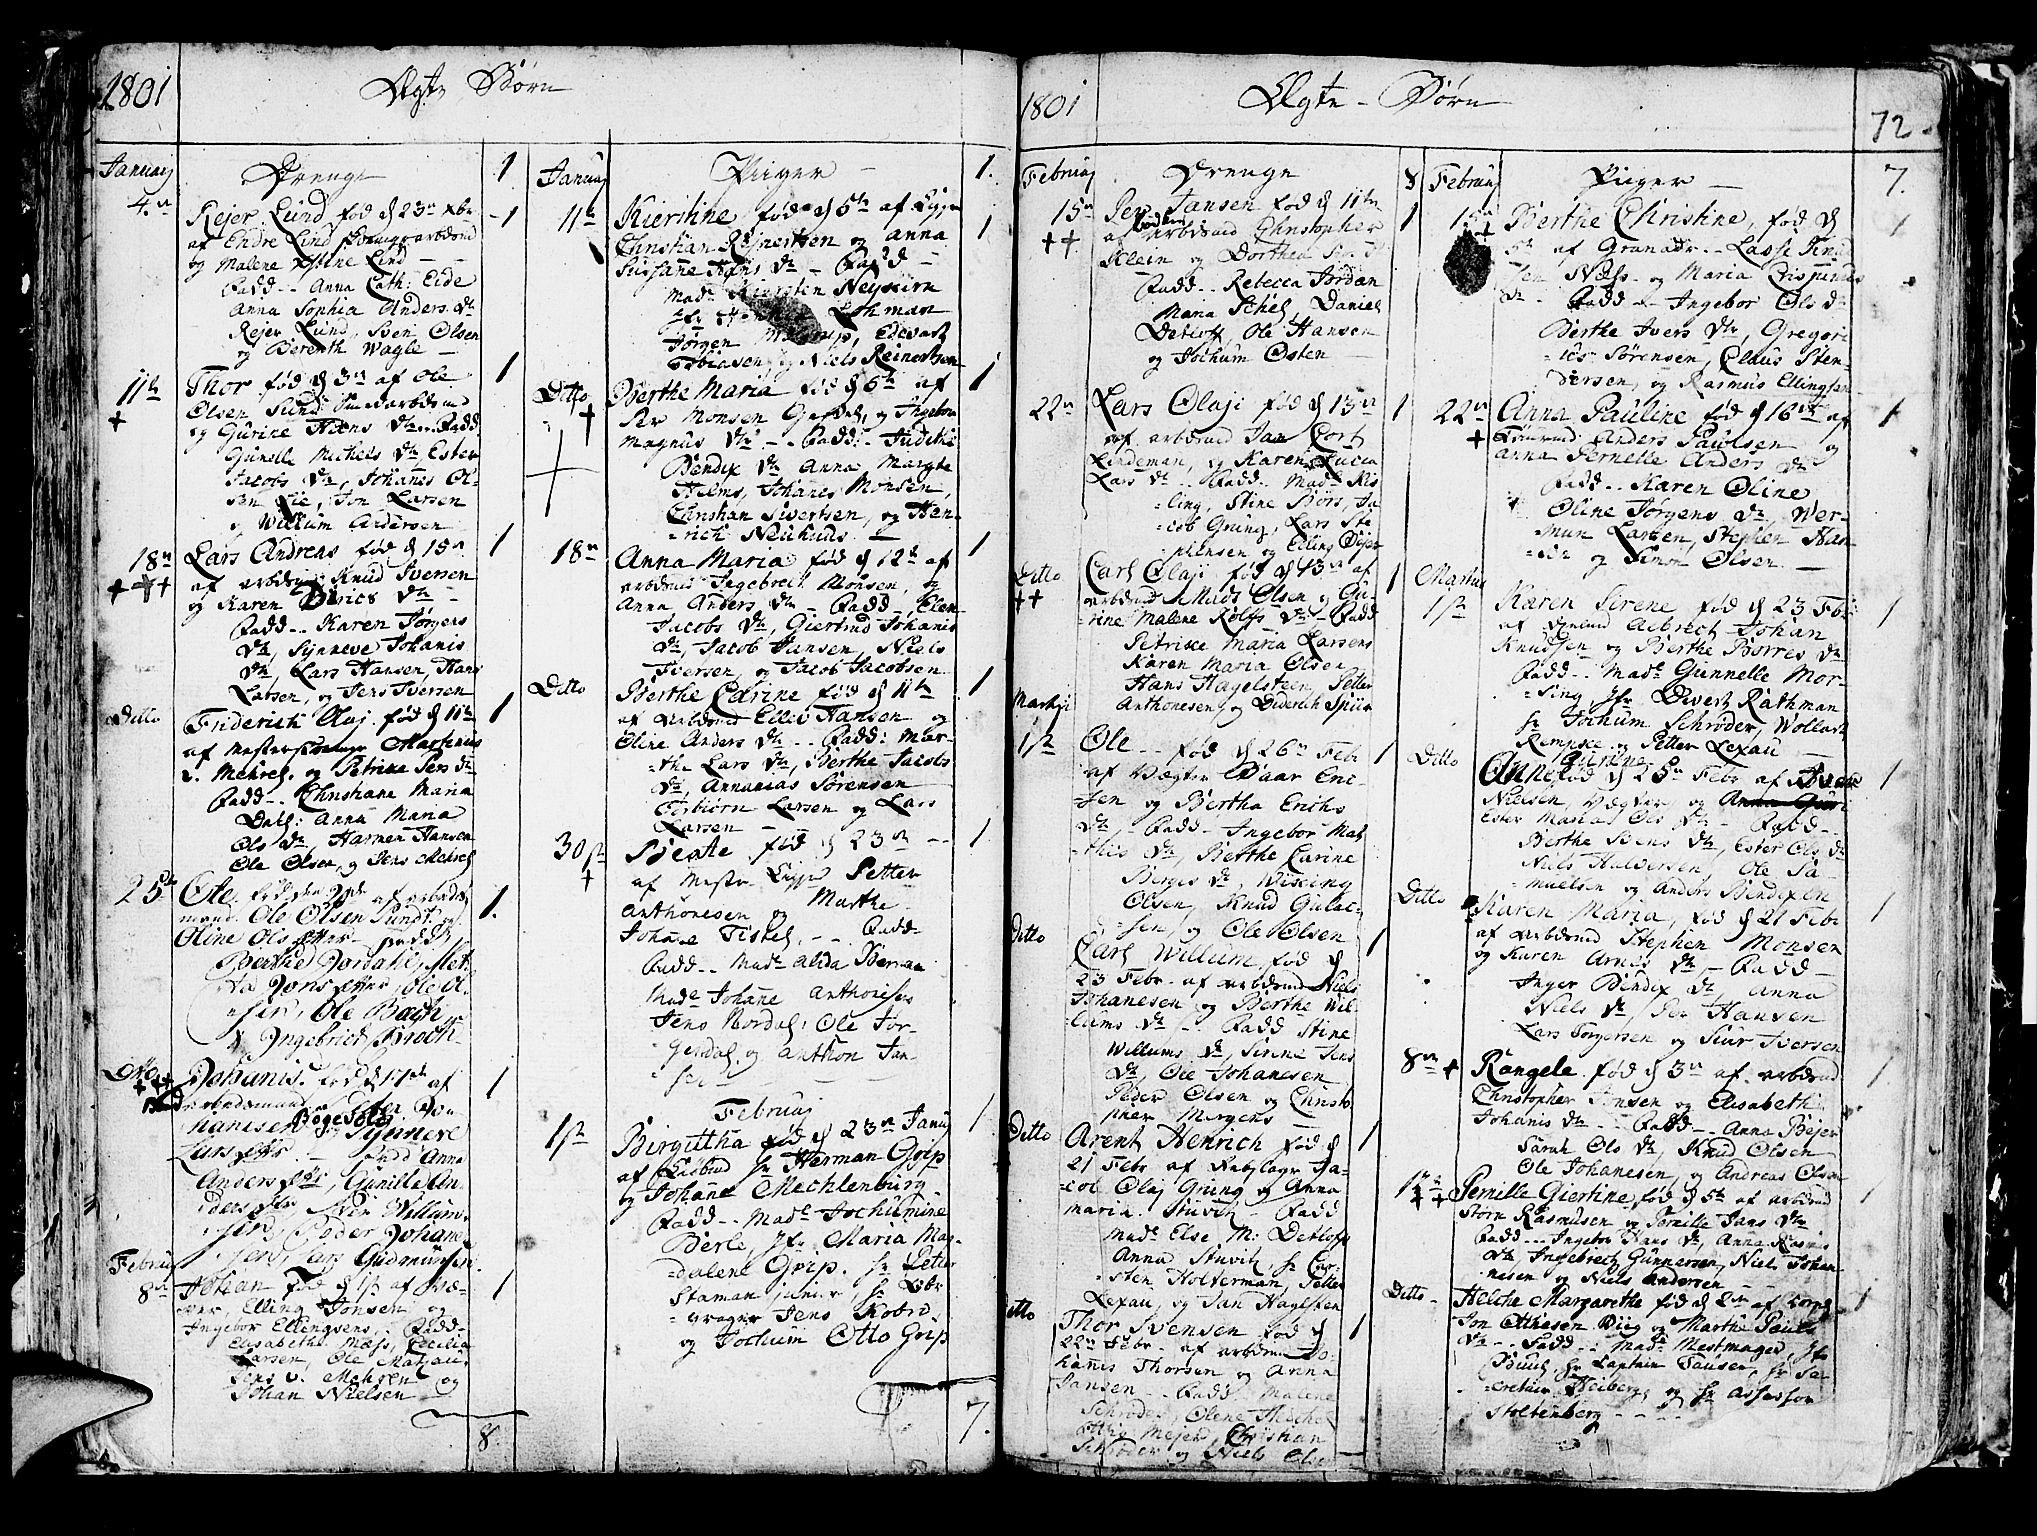 1801
Ægte Børn
Januarj
Drenge
1
4.
Rejer Lund fød d 23 Xbr
1
af Endre Lind
og Malene Lind
Fadd.. Anna Cath: Eide
Anna Sophia Anders Dr
Rejer Lund, Sven Olsen
og Berenth Wagle
11
Thor fød d 3 af Ole
1
+
Olsen Sund arbdsmd
og Gurine Hans Dr.. Fadd
Gunelle Michels Dr, Ester
Jacobs Dr, Johanes Ol-
sen Lie, Jon Larsen
og Willum Andersen
18
Lars Andreas fød d 15
1
+++
af arbdsmd Knud Iversen
og Karen Dr
Fadd.. Karen Jørgens
Dr, Synneve Johanis
Dr, Lars Hansen, Hans
Larsen, og Jens Iversen
Ditto
Friderich Olaj fød d 11
1
af Martinus
v. Mehrel, og Petrike Jens Dr
Fadd.. Christiane Maria
Dahl: Anna Maria
Ols Dr, Harmen Hansen
Ole Olsen, og Jens Mehrel
25
Ole, fød den af arbeids
1.
mand Ole Olsen Sundt og
Oline Ols Fadd
Berthe Jordahl, Met-
ta Jons Ole Ol-
sen, Ole Bach
og Ingebrict Broch
Ditto
Johanis fød d af
1
+++
arbeidsmand Peder Jo-
hanisen og Synneve
Lars Fadd Anna
Anders Gunille An-
ders Iver Willum-
sen, Peder Johane-
sen, Lars Gudmunsen
Februarj
8
Johan fød d 1 af
1
Elling Jonsen og
Ingebor Ellingsens, Fadd
Elisabethe Mejs, Cecilia
Larsen, Ole
Jens v. Mehren og
Johan Nielsen
8
Januarj
Piiger
1.
11
Kierstine fød d 5 af Ligger
1
Christian Reinertsen og Anna
Sussane Hans Dr - Fadd
Made Kiersten Neykirn
Lohman
Jørgen Edvard
Tobiasen, og Niels Reinertsen
Ditto
Berthe Maria fød d 5 af
1
+
Per Monsen og Ingebor
Magnus Dr - Fadd: Judithe
Bendix Dr Anna Margthe
Helms, Johanes Monsen,
Christian Sivertsen, og Hen-
rich Neuhuus
18
Anna Maria fød d 12 af
1
arbdsmd Ingebrect Monsen, og
Anna Anders Dr - Fadd Elen
Jacobs Dr, Giertrud Johanis
Dr, Jacob Jansen, Niels
Iversen, og Jacob Jacobsen
Ditto
Berthe Carine fød d 11
1
af arbdsmd Ellev Hansen og
Oline Anders Dr.. Fadd: Mar-
the Lars Dr, Berthe Jacobs
Dr, Annanias Sørensen
Torbiørn Larsen og Lars
Larsen
30
Bjerte fød d 23
1
+
af Mestr Ligger Petter
Anthonesen og Marthe
Johane Fistel, - Fadd
Fadd.. Made Alida
Made Johane Anthonises
Jens Nordal, Ole Jør-
gendal, og Anthon Jan-
sen
Februarj
1
Birgittha fød d 23 Januj
1
af hr Herman Grip
og Johane Mechlenburg
Fadd.. Made Jochumine
Berle, Jfr Maria Mag-
dalene Grip. hr Peter
Staman junior, hr
Jens Kobro
og Jochum Otto Grip
7.
1801
Ægte - Børn
72
Februarj
Drenge
8
15
Per Jansen fød d 11
1
++
af Arbdsmd Christopher
Klein og Dorthea
Fadd.. Rebecca Jordan
Maria Schel, Daniel
Detloff, Ole Hansen
og Jochum Osten
22
Lars Olaji fød d 13
1
af arbdsmd Jan Cort
Lindeman, og Karen Lucia
Lars Dr.. Fadd. Made Kis-
ling, Stine Børs, Ja-
cob Grung, Lars Ste-
phensen og Elling
Ditto
Carl Olaji fød d 13 af
1
++
arbdsmd Mads Olsen og Gu-
rine Malene Rolfs Dr - Fadd
Petrike Maria Larsens
Karen Maria Olsen
Hans Hagelsteen, Petter
Anthonesen og Diderich Spuir
Martij
1
Ole -- fød d 26 Febr
1
af Vægter Baar Eric-
sen og Bertha Erichs
Dr, - Fadd - Ingebor Mat-
this Dr, Berthe Carine
Berges Dr
Olsen, Knud Gulac-
sen, og Ole Olsen
Ditto
Carl Willum, fød d
1
23 Febr. af arbdsmd Niels
Johanesen og Berthe Wil-
lums Dr.. Fadd Stine
Willums Dr, Sirene Jens
Dr, Ole Johanesen
Peder Olsen og Christo-
pher Morgens
Ditto
Arent Henrich fød d
1
21 Febr af Rebslager Ja-
cob Olaj Grung og Anna
Maria. Stuvit, - Fadd
Made Else M: Detloff
Anna Stuvit, hr Car-
sten Holterman, Petter
Lexau, og Jan Haglsten
Ditto
Thor Svensen fød d
1
22 Febr. af arbdsmd Jo-
hanis Thorsen og Anna
Jansen.. Fadd Malene
Schrøder, Olene
Mejer, Christian
Schrøder og Niels Olsen
Februarj
Piiger
7.
15
Berthe Christine, fød d
1
+
5 af Granadr.. Lasse Knud-
sen Næss. og Maria Crispinus
Dr - Fadd - Ingebor Ols Dr
Berthe Ivers Dr, Gregori-
us Sørensen, Claus Sten-
dersen, og Rasmus Ellingsen
22
Anna Pauline fød d 16 af
1
+
Anders Paulsen og
Anna Pernelle Anders Dr
Fadd.. Karen Oline
Oline Jørgens Dr Wer-
mun Larsen, Stephen Han-
sen og Simon Olsen
Martius
1
Karen Sirene fød d 23 Feb:
1
af Albrect Johan
Knudsen og Berthe Børres Dr
Fadd.. Made Gunnelle Mor-
sing, Jfr Divert Rathman
hr Jochum Schrøder, Wollart
Rempke og Petter Lexau
Ditto
Anne Gurine fød d 25 Febr af Iver
1
Nielsen, Vægter og
Ester Maria Ols Dr - Fadd
Berthe Bens Dr, Ester Ols Dr
Niels Halversen, Ole Sa-
muelsen og Anders Bendixen
Ditto
Karen Maria, fød d 21 Febr
1
af arbdsmd Stephen Monsen
og Karen Arnes Dr - Fadd
Inger Bendix Dr Anna
Niels Dr, Per Hansen
Lars Torgersen og Siur Iversen
8 +
Rangele fød d 3 af arbdsmd
1
Christopher Jonsen og Elisabeth
Johanis Dr.. Fadd - Anna Bejer
Sarah Ols Dr, Knud Olsen
Ole Johanesen, og Andreas Olsen
++
Pernille Giertine, fød d 5 af arbdsmd
1
Størn Rasmusen og Pernille Jans Dr
Fadd... Ingebor Hans Dr, Anna Rasmus
Dr, Ingebrect Gunnersen, Niels Johan-
nesen og Niels Andersen
Ditto
Helche Margarethe fød d 2 af
1
Jon Ottesen Wiig og Marthe Pauls
Dr - Fadd. Made Mestmager, Jfr
Buul, hr Captain Tauser, hr Se-
cretair Heiberg, og hr Assessor
Stoltenberg